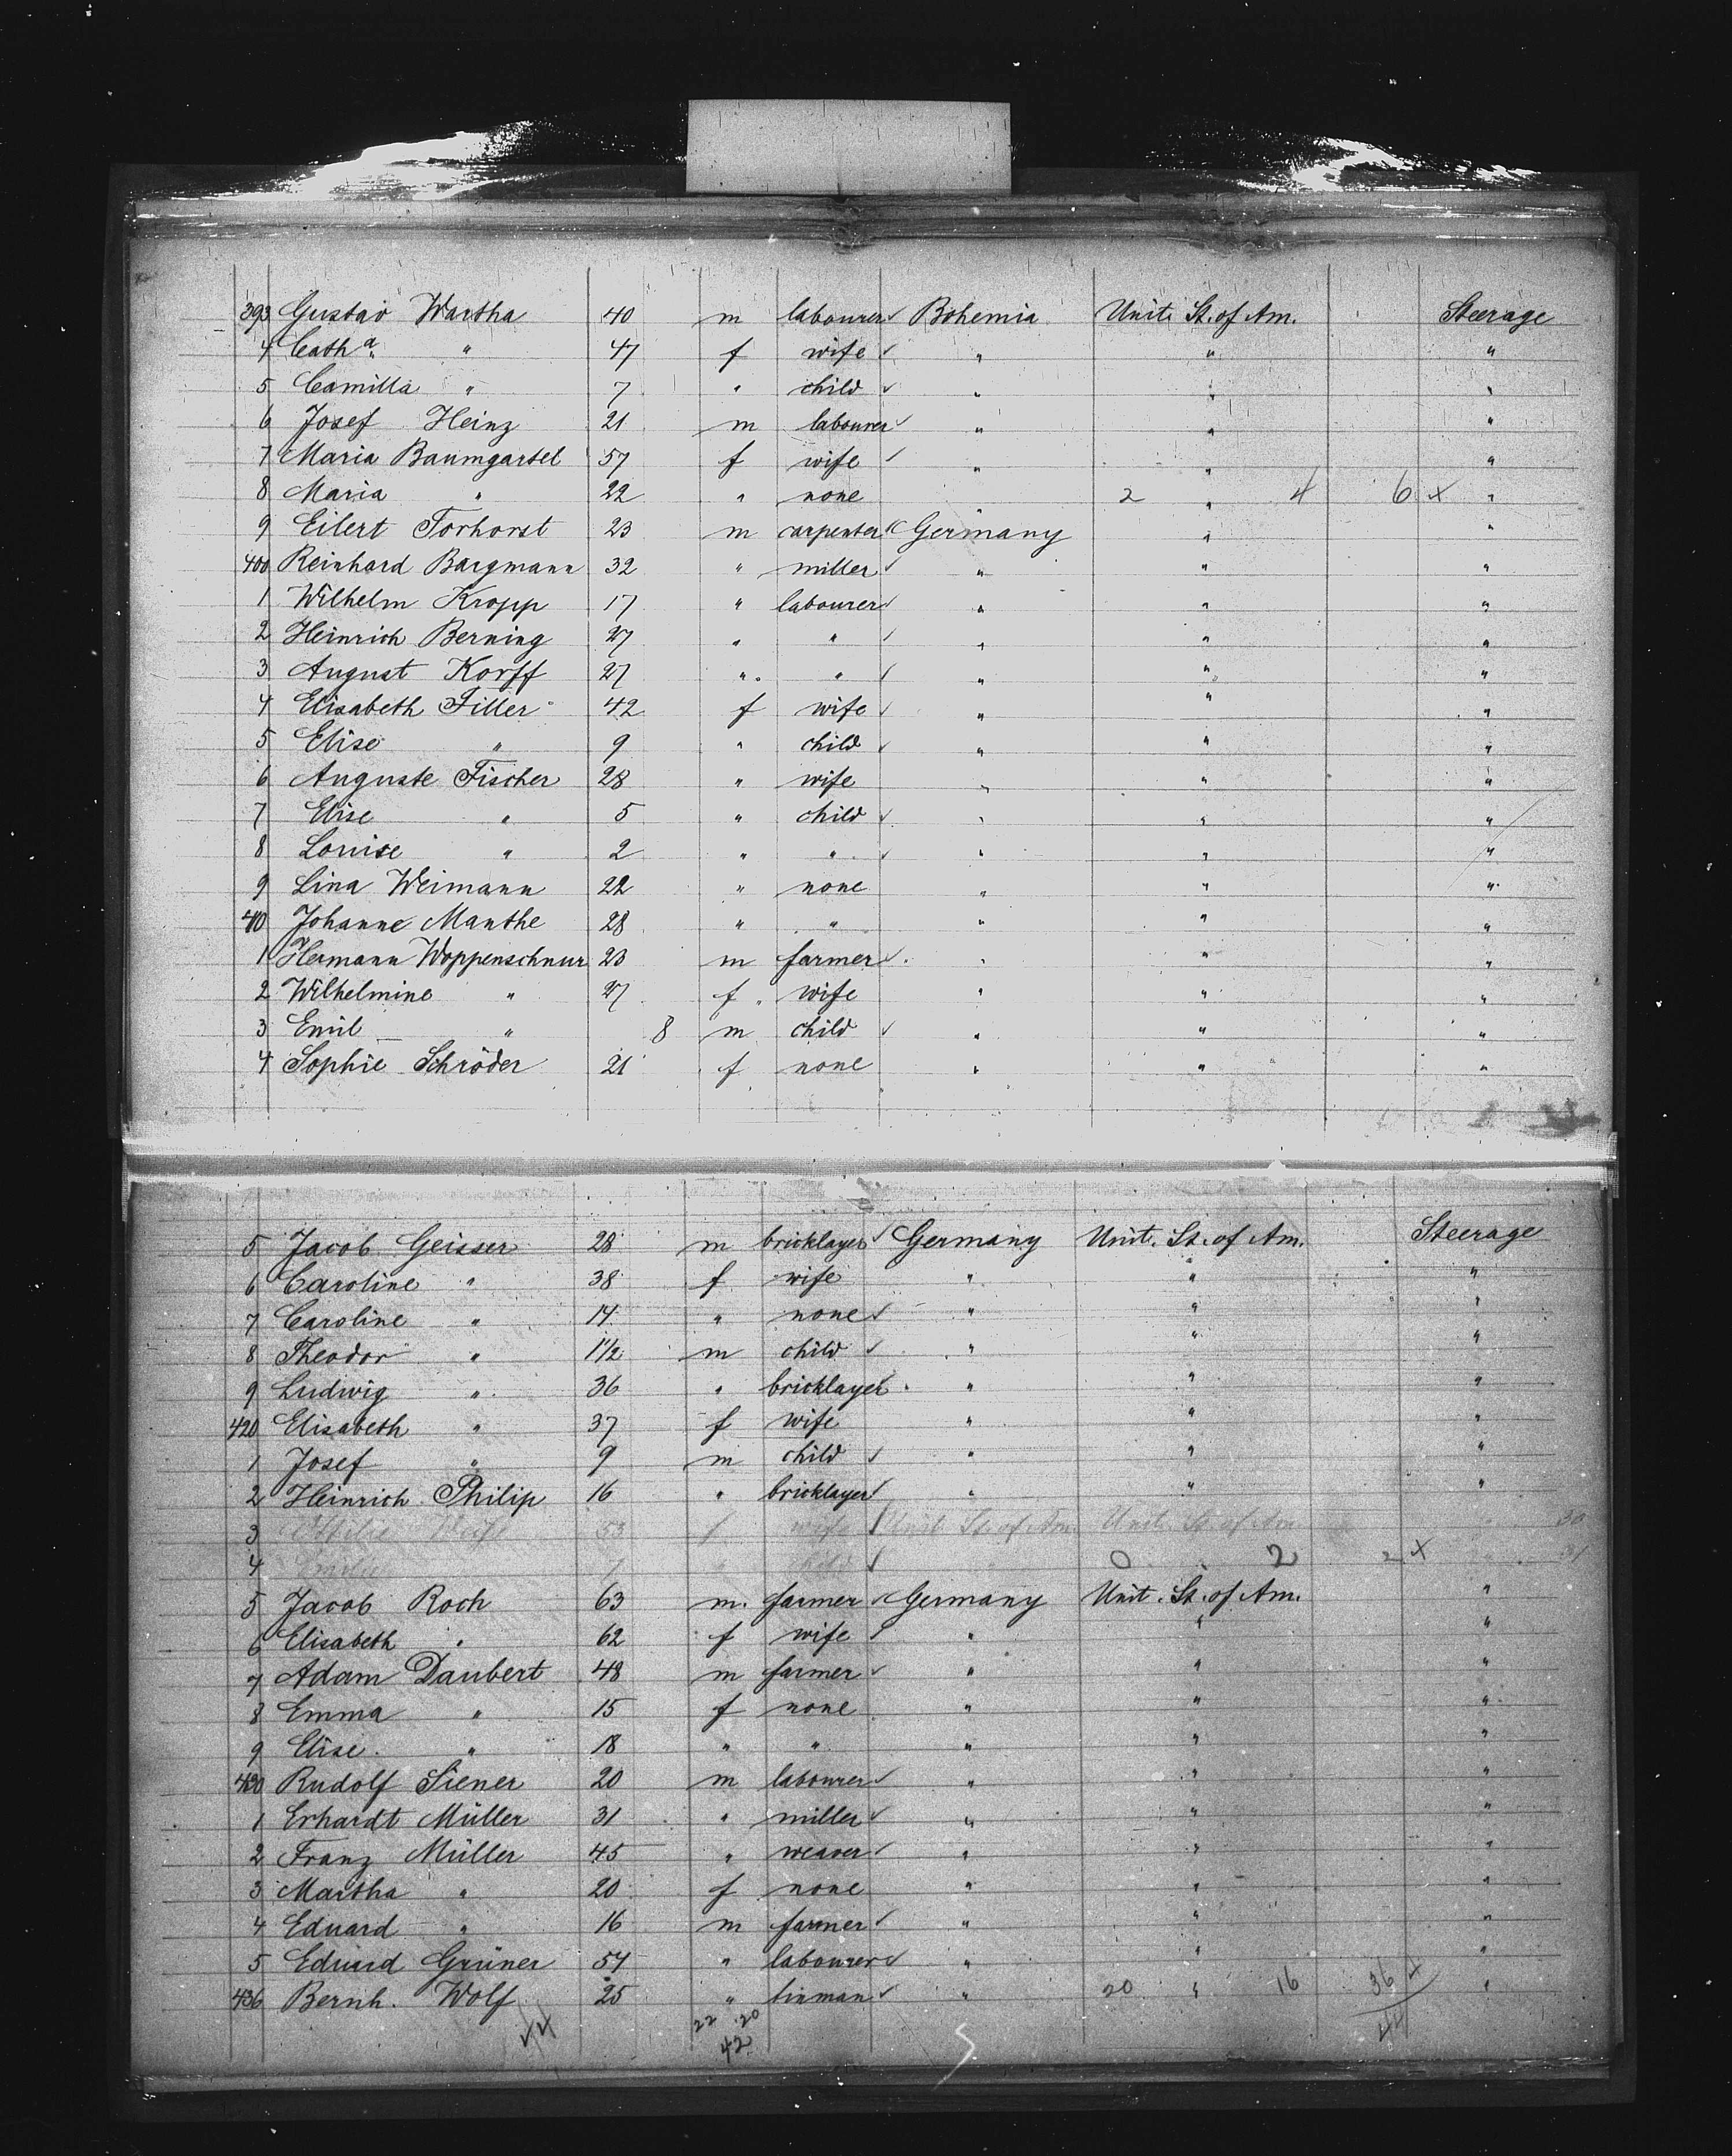 393 Gustav Wartha 40 m labourer Bohemia Unit. St. of Am. Steerage
4 Catha " 47 f wife " " "
5 Camilla " 7 " child " " "
6 Josef Heinz 21 m labourer " " "
7 Maria Baumgartel 57 f wife " " "
8 Maria " 22 " none " 2 " 4 6 x "
9 Eilert Torhorst 23 m carpenter Germany " "
400 Reinhard Bargmann 32 " miller " " "
1 Wilhelm Kropp 17 " labourer " " "
2 Heinrich Berning 27 " " " " "
3 August Korff 27 " " " " "
4 Elisabeth Filler 42 f wife " " "
5 Elise " 9 " child " " "
6 Auguste Fischer 28 " wife " " "
7 Elise " 5 " child " " "
8 Louise " 2 " " " " "
9 Lina Weimann 22 " none " " "
410 Johanne Manthe 28 " " " " "
1 Hermann Woppenschnur 23 m farmer " " "
2 Wilhelmine " 27 f wife " " "
3 Emil " 8 m child " " "
4 Sophie Schröder 21 f none " " "
5 Jacob Geisser 28 m bricklayer Germany Unit. St. of Am. Steerage
6 Caroline " 38 f wife " " "
7 Caroline " 14 " none " " "
8 Theodor " 1 1/2 m child " " "
9 Ludwig " 36 " bricklayer " " "
420 Elisabeth " 37 f wife " " "
1 Josef " 9 m child " " "
2 Heinrich Philip 16 " bricklayer " " "
3 53 f wife Unit. St. of Am. Unit. St. of Am. " 30
4 child 0 2 2 x " 31
5 Jacob Roch 63 m. farmer Germany Unit. St. of Am. "
6 Elisabeth " 62 f wife " " "
7 Adam Daubert 48 m farmer " " "
8 Emma " 15 f none " " "
9 Elise " 18 " " " " "
430 Rudolf Siener 20 m labourer " " "
1 Erhardt Müller 31 " miller " " "
2 Franz Müller 45 " weaver " " "
3 Martha " 20 f none " " "
4 Eduard " 16 m farmer " " "
5 Eduard Grüner 54 " labourer " " "
436 Bernh. Wolf 25 " " 20 " 16 36 x "
44 22 20 44
42